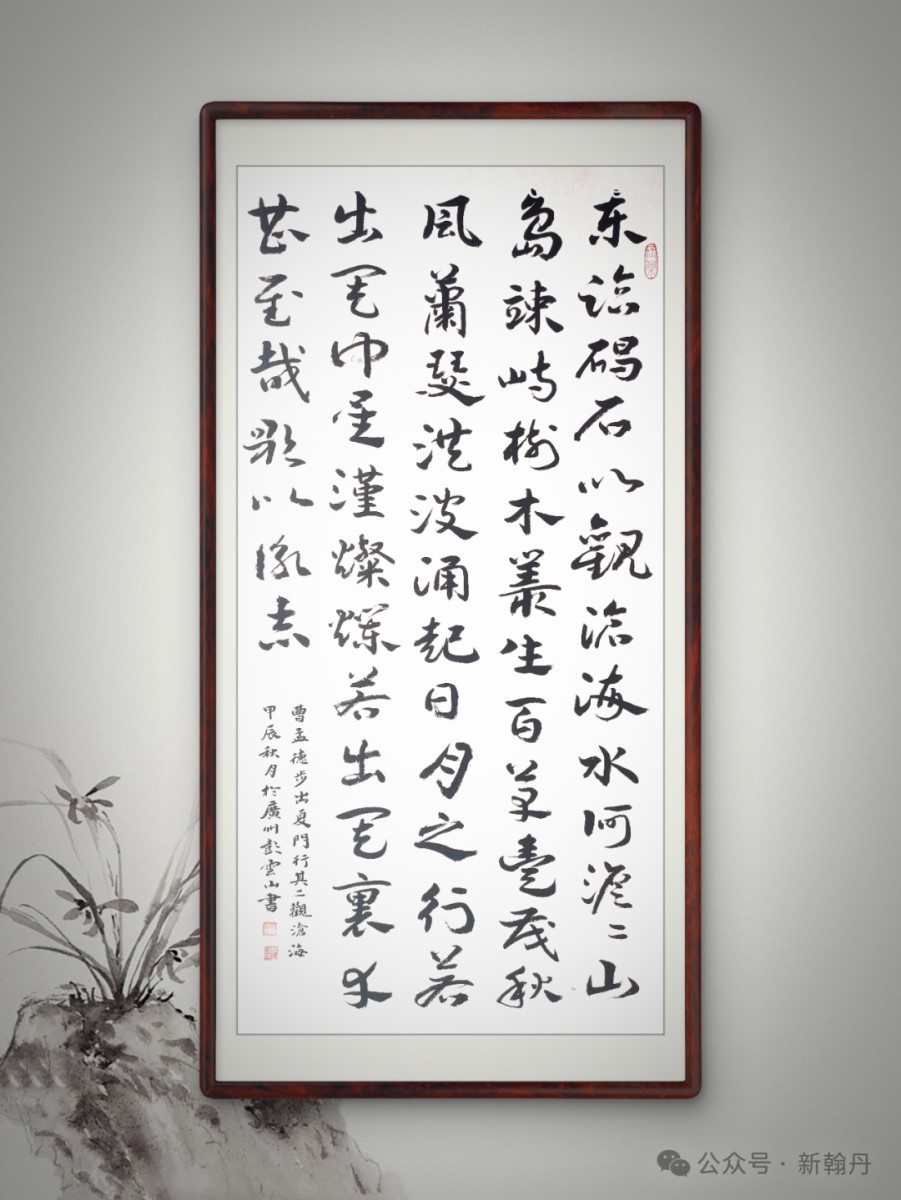 東臨碣石以觀滄海水何澹〻山
島竦峙樹木叢生百草豐茂秋
風蕭瑟洪波涌起日月之行若
出其中星漢燦爛若出其裏幸
甚至哉歌以詠志
曹孟德步出夏門行其二觀滄海
甲辰秋月於廣州彭雲山書
公众号 · 新翰丹